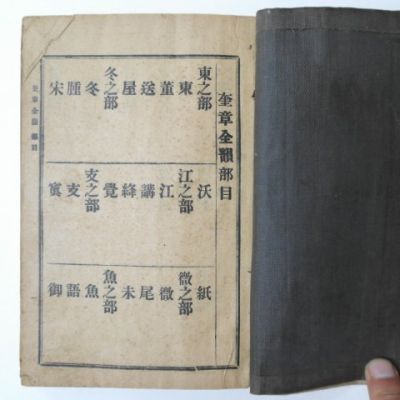 奎章全韻部目
東之部
東
董
送
屋
冬之部
冬
腫
宋
沃
江之部
江
講
絳
覺
支之部
支
寘
紙
微之部
微
尾
未
魚之部
魚
語
御
奎章全韻 部目